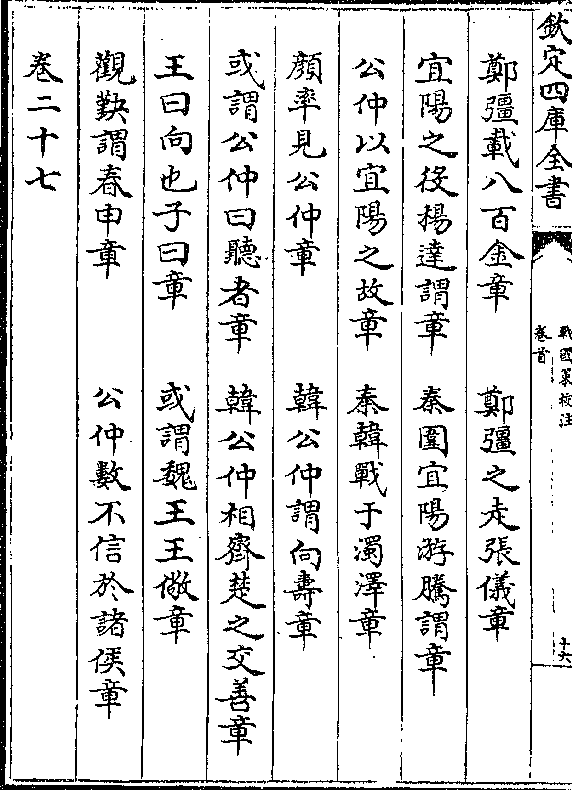 欽定四庫全書
戰國策校注
卷首
十六
鄭彊載八百金章　鄭彊之走張儀章
宜陽之役楊達謂章　秦圍宜陽游騰謂章
公仲以宜陽之故章　秦韓戰于濁澤章
顔率見公仲章　韓公仲謂向壽章
或謂公仲曰聽者章　韓公仲相齊楚之交善章
王曰向也子曰章　或謂魏王王儆章
觀鞅謂春申章　公仲數不信於諸侯章
卷二十七